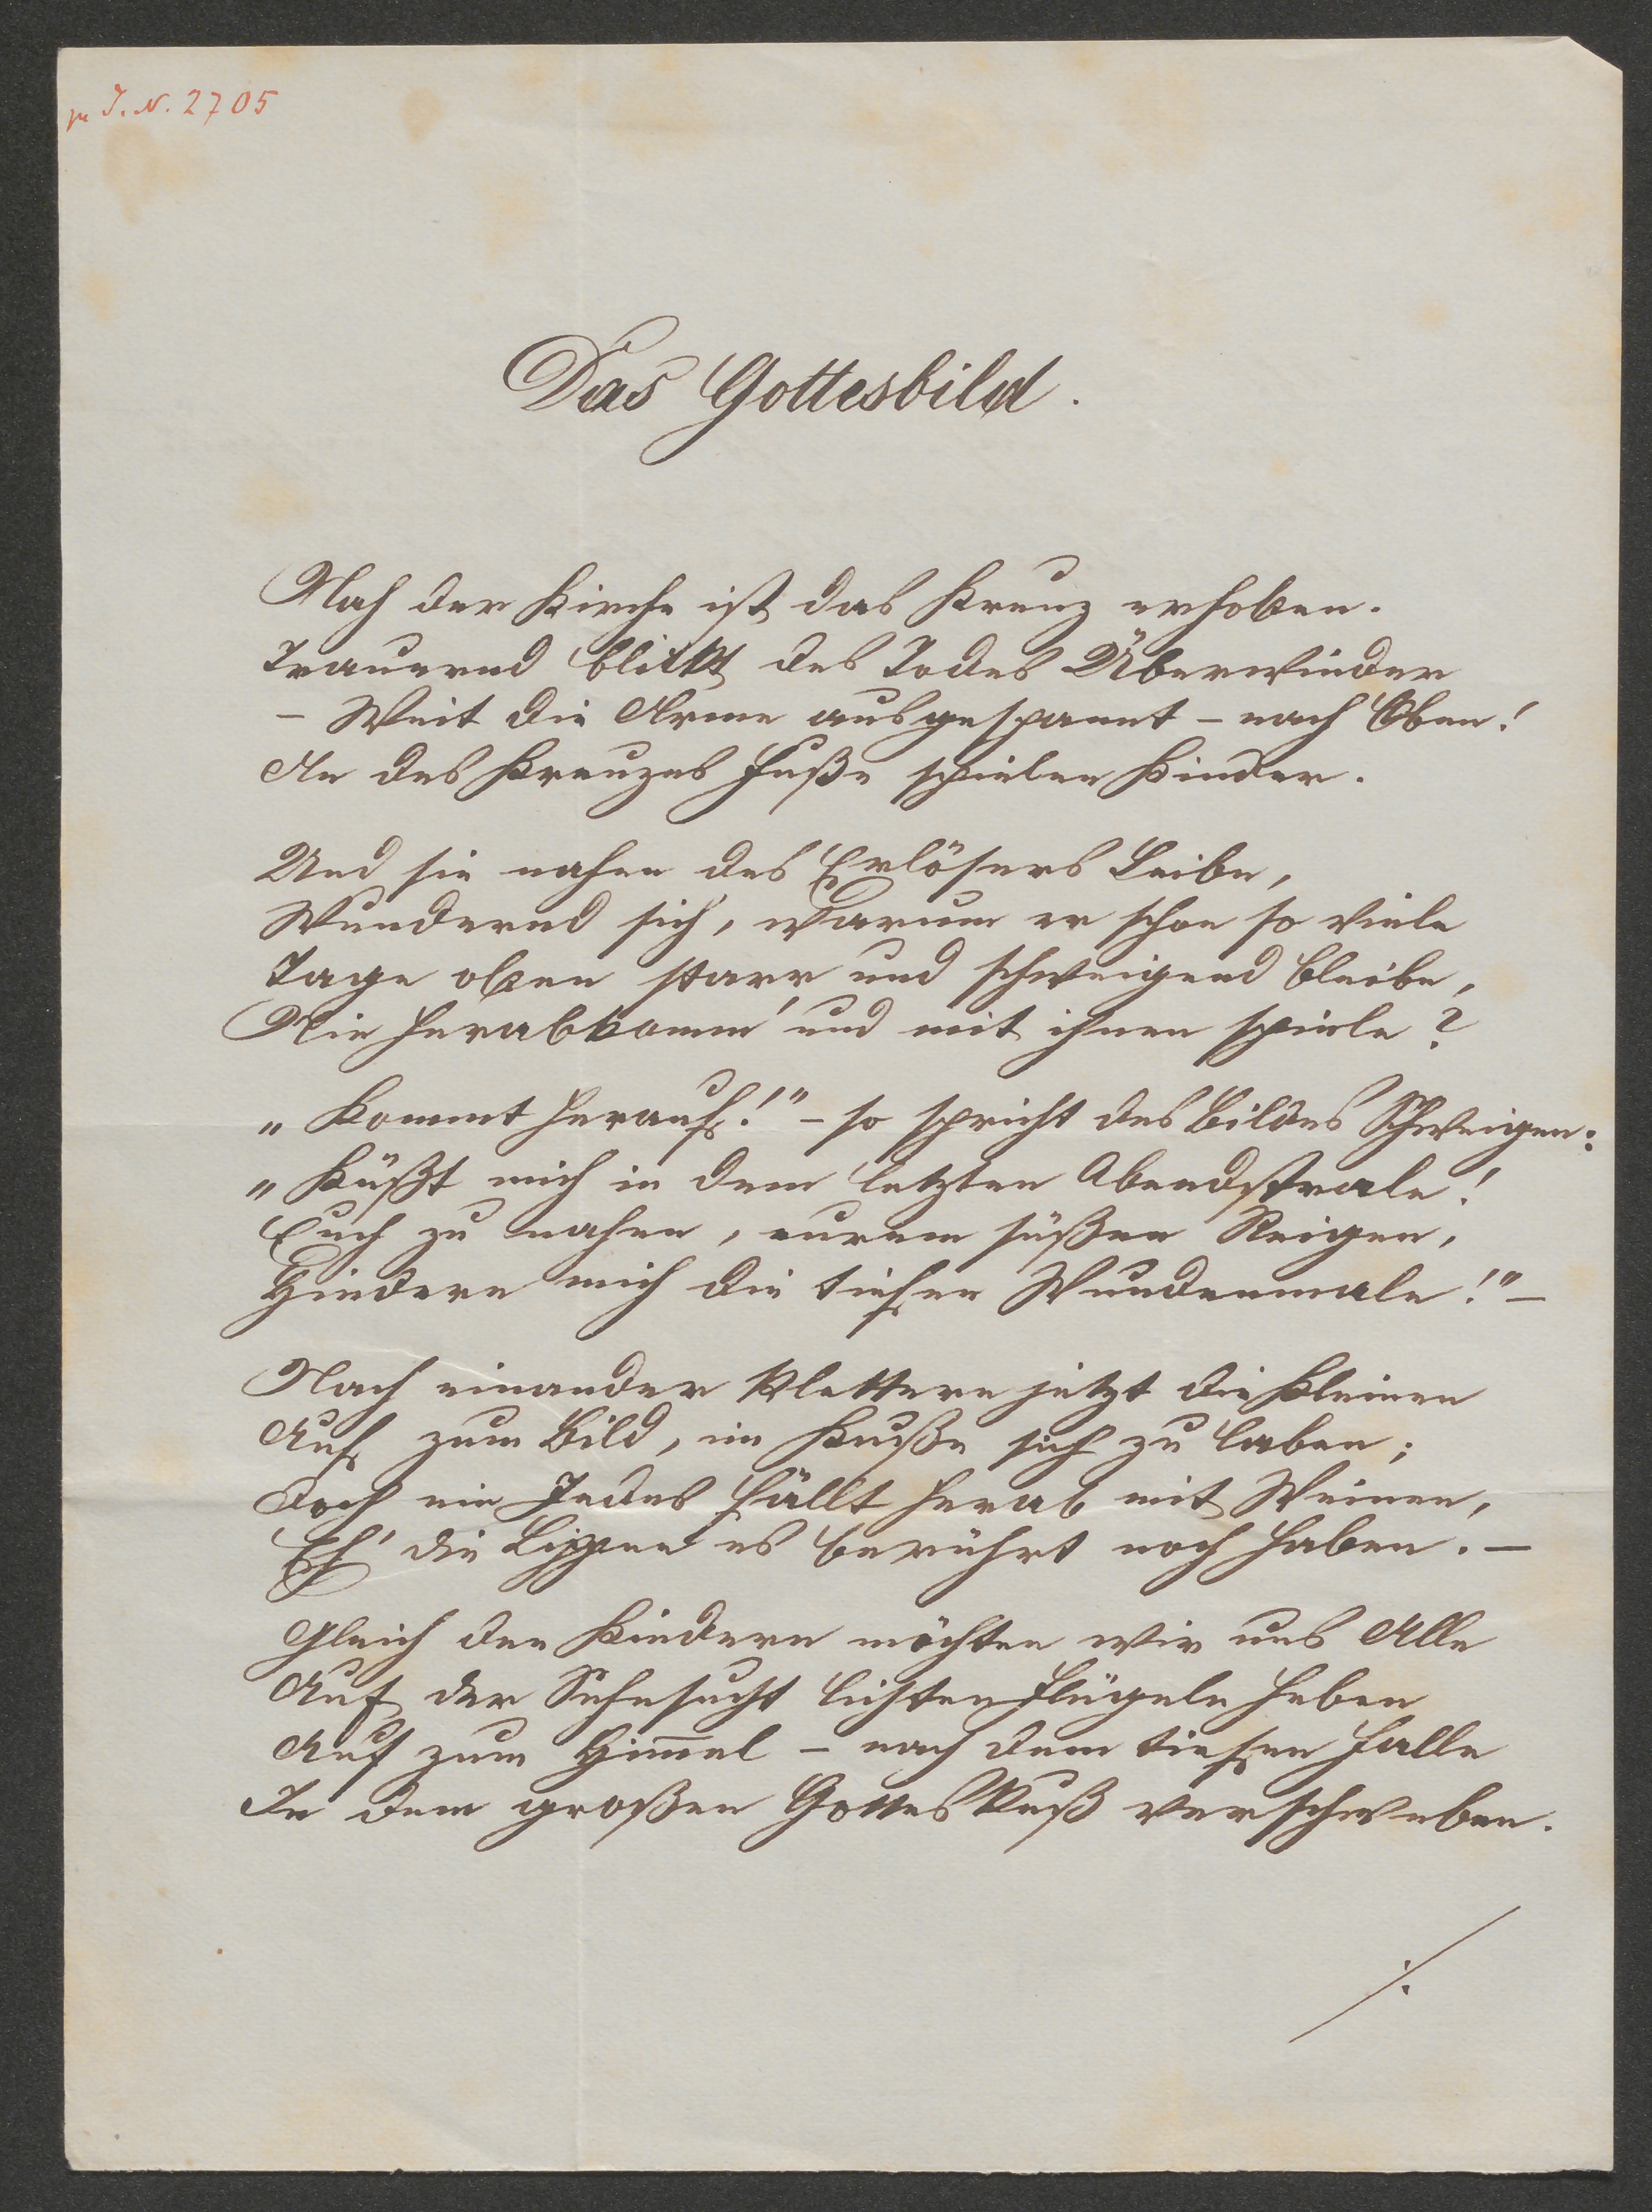 zu I. N. 2705
Das Gottesbild.
Nah der Kirche ist das Kreuz erhoben.
Trauernd blickt des Todes Überwinder
– Weit die Arme ausgespannt – nach Oben!
An des Kreuzes Fuße spielen Kinder.
Und sie nahen des Erlösers Leibe,
Wundernd sich, warum er schon so viele
Tage oben starr und schweigend bleibe,
Nie herabkomm' und mit ihnen spiele?
„Kommt herauf!" – so spricht des Bildes Schweigen:
„Küßt mich in dem letzten Abendstrale!
Euch zu nahen, eurem süßen Reigen,
Hindern mich die tiefen Wundenmale!" –
Nach einander klettern jetzt die Kleinen
Auf zum Bild, im Kuße sich zu laben;
Doch ein Jedes fällt herab mit Weinen,
Eh' die Lippen es berührt noch haben. –
Gleich den Kindern möchten wir uns Alle
Auf der Sehnsucht lichten Flügeln heben
Auf zum Him̅el – nach dem tiefen Falle
In dem großen Gotteskuß verschweben.
./.